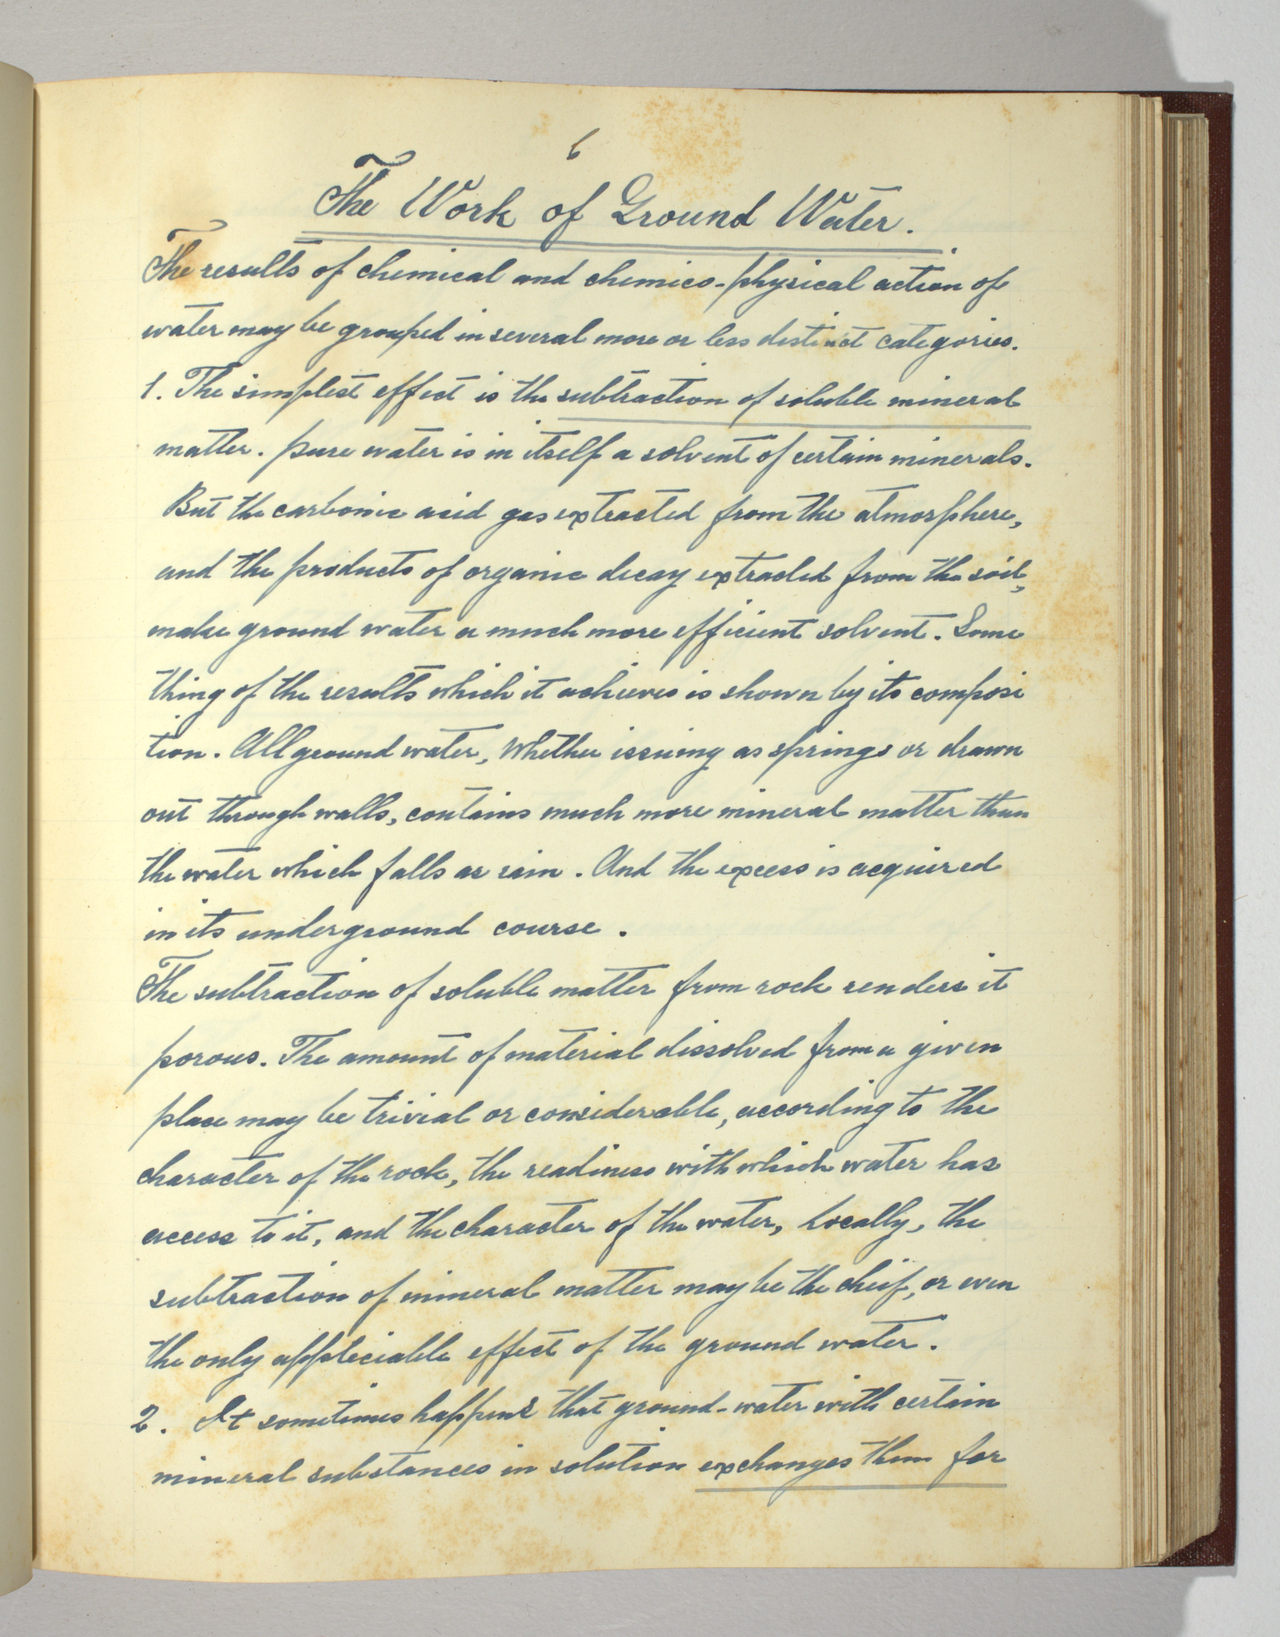 6
The Work of Ground Water.
The results of chemical and chemico-physical action of
water may be grouped in several more or less distinct categories.
1. The simplest effect is the subtraction of soluble mineral
matter. pure water is in itself a solvent of certain minerals.
But the carbonic acid gas extracted from the atmosphere,
and the products of organic decay extracted from the soil,
make ground water a much more efficient solvent. Some
thing of the results which it achieves is shown by its composi
tion. All ground water, whether issuing as springs or drawn
out through walls, contains much more mineral matter than
the water which falls as rain. And the excess is acquired
in its underground course.
The subtraction of soluble matter from rock renders it
porous. The amount of material dissolved from a given
place may be trivial or considerable, according to the
character of the rock, the readiness with which water has
access to it, and the character of the water, Locally, the
subtraction of mineral matter may be the chief, or even
the only appleciable effect of the ground water.
2. It sometimes happens that ground-water with certain
mineral substances in solution exchanges them for